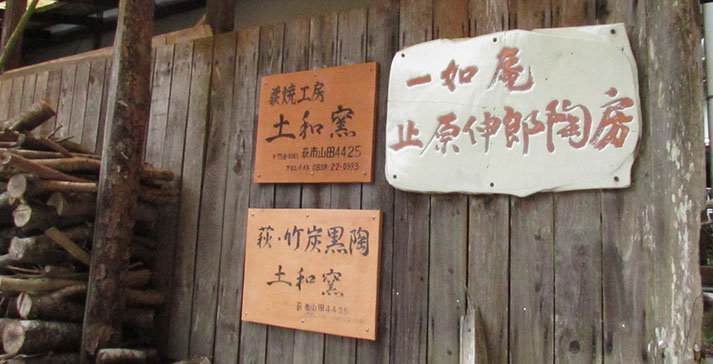 萩焼工房
土和窯
萩市山田4425
萩・竹炭黒陶
土和窯
萩市山田4425
一如庵
止原伸郎陶房